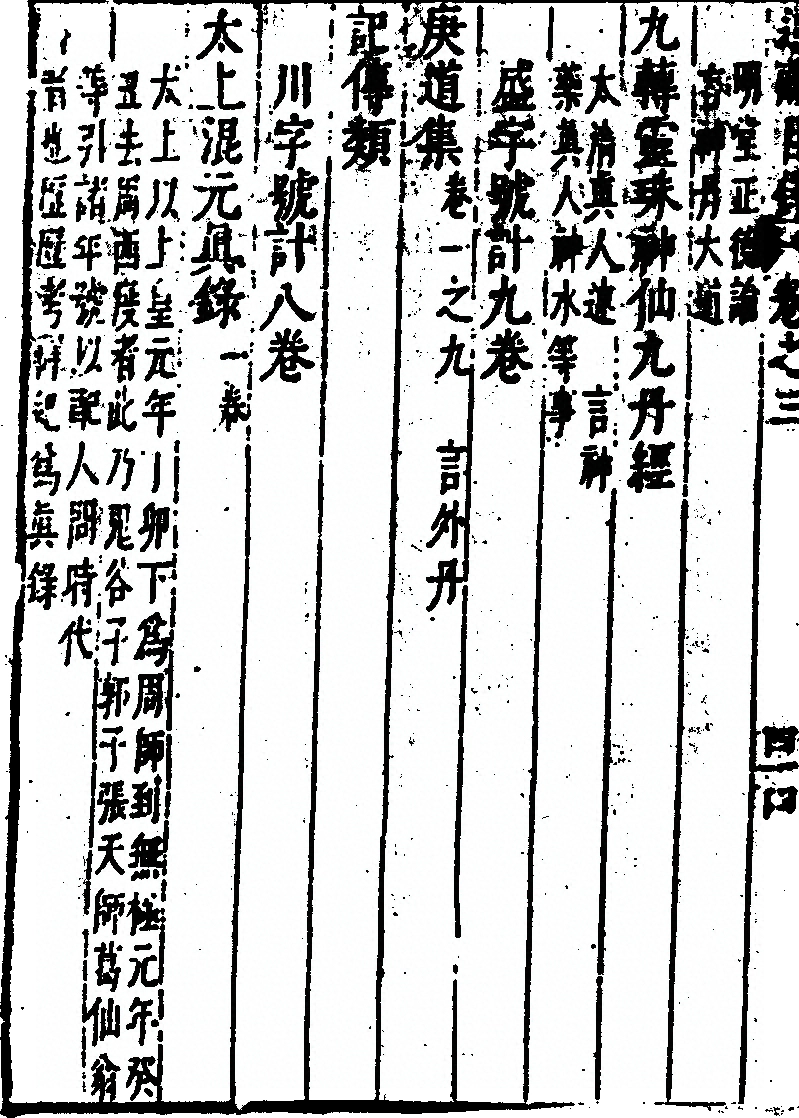 目錄 卷之三
明堂正德論
神丹大道
九轉靈珠神仙九丹經
太清真人述 言神
藥真人神水等事
盛字號計九卷
庚道集 卷一之九 言外丹
記傳類
川字號計八卷
太上混元眞錄 一卷
太上以上皇元年丁卯下為周師到無極元年癸
丑去周西度者此乃鬼谷子郭子張天師葛仙翁
等引諸年號以配人間時代
者也歷歷考詳記為眞錄